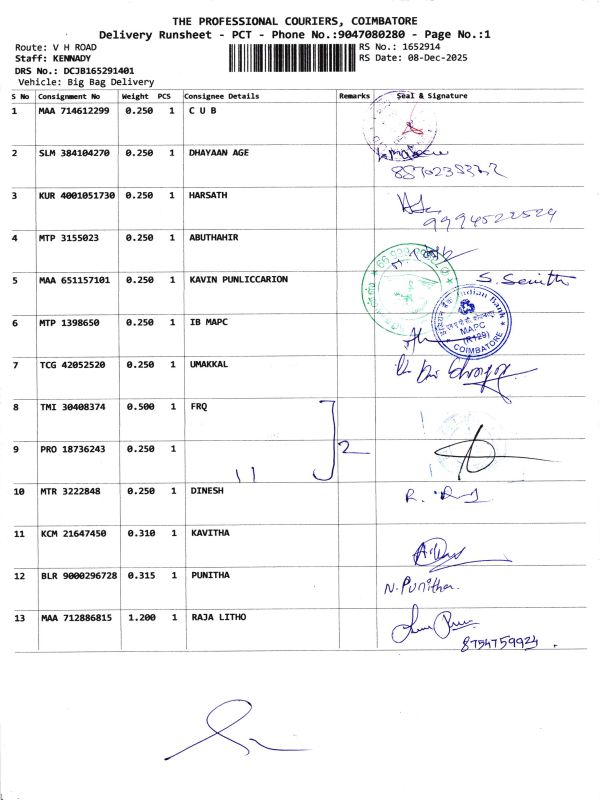 THE PROFESSIONAL COURIERS, COIMBATORE
Delivery Runsheet - PCT - Phone No.:9047080280 - Page No.:1
Route: V H ROAD RS No.: 1652914
Staff: KENNADY RS Date: 08-Dec-2025
DRS No.: DCJB165291401
Vehicle: Big Bag Delivery
S No Consignment No Weight PCS Consignee Details Remarks Seal & Signature
1 MAA 714612299 0.250 1 C U B
2 SLM 384104270 0.250 1 DHAYAAN AGE
3 KUR 4001051730 0.250 1 HARSATH
9994522524
4 MTP 3155023 0.250 1 ABUTHAHIR
5 MAA 651157101 0.250 1 KAVIN PUNLICCARION
6 MTP 1398650 0.250 1 IB MAPC
Indian Bank
MAPC
(R129)
COIMBATORE
7 TCG 42052520 0.250 1 UMAKKAL
8 TMI 30408374 0.500 1 FRQ
9 PRO 18736243 0.250 1
11 2
10 MTR 3222848 0.250 1 DINESH
11 KCM 21647450 0.310 1 KAVITHA
12 BLR 9000296728 0.315 1 PUNITHA N. Punitha.
13 MAA 712886815 1.200 1 RAJA LITHO
8754759924